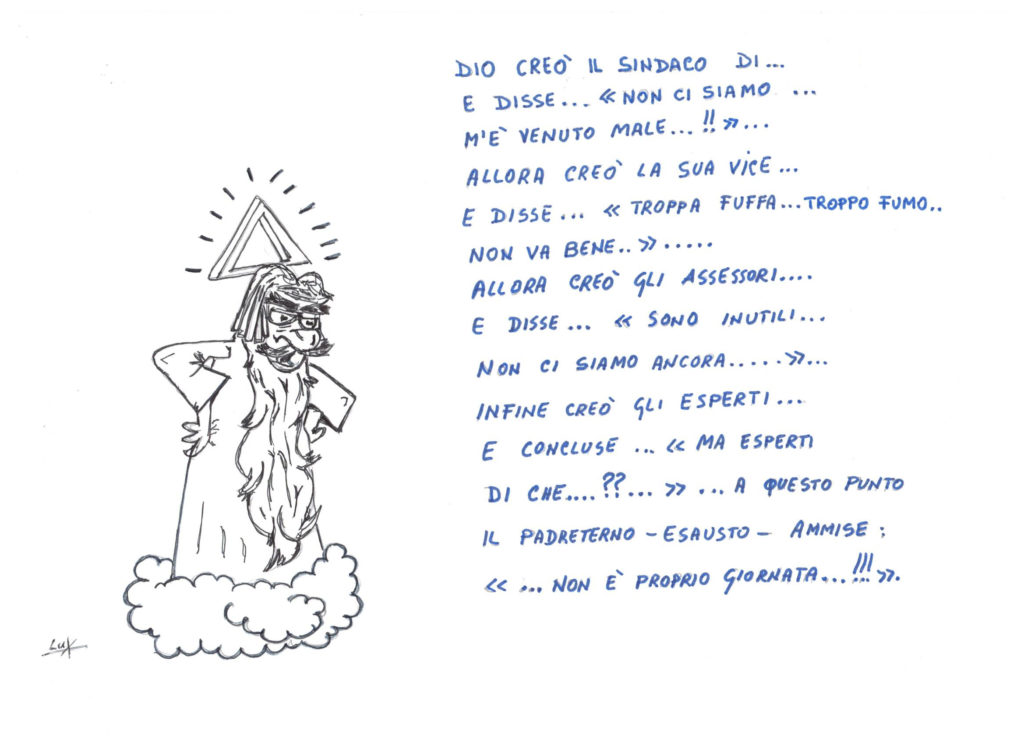 DIO CREÒ IL SINDACO DI...
E DISSE... «NON CI SIAMO ...
M'È VENUTO MALE...!!»...
ALLORA CREÒ LA SUA VICE...
E DISSE... «TROPPA FUFFA...TROPPO FUMO..
NON VA BENE..».....
ALLORA CREÒ GLI ASSESSORI....
E DISSE... «SONO INUTILI...
NON CI SIAMO ANCORA.....»...
INFINE CREÒ GLI ESPERTI...
E CONCLUSE ...«MA ESPERTI
DI CHE....??...» ... A QUESTO PUNTO
IL PADRETERNO - ESAUSTO - AMMISE:
«...NON È PROPRIO GIORNATA...!!!».
Lux